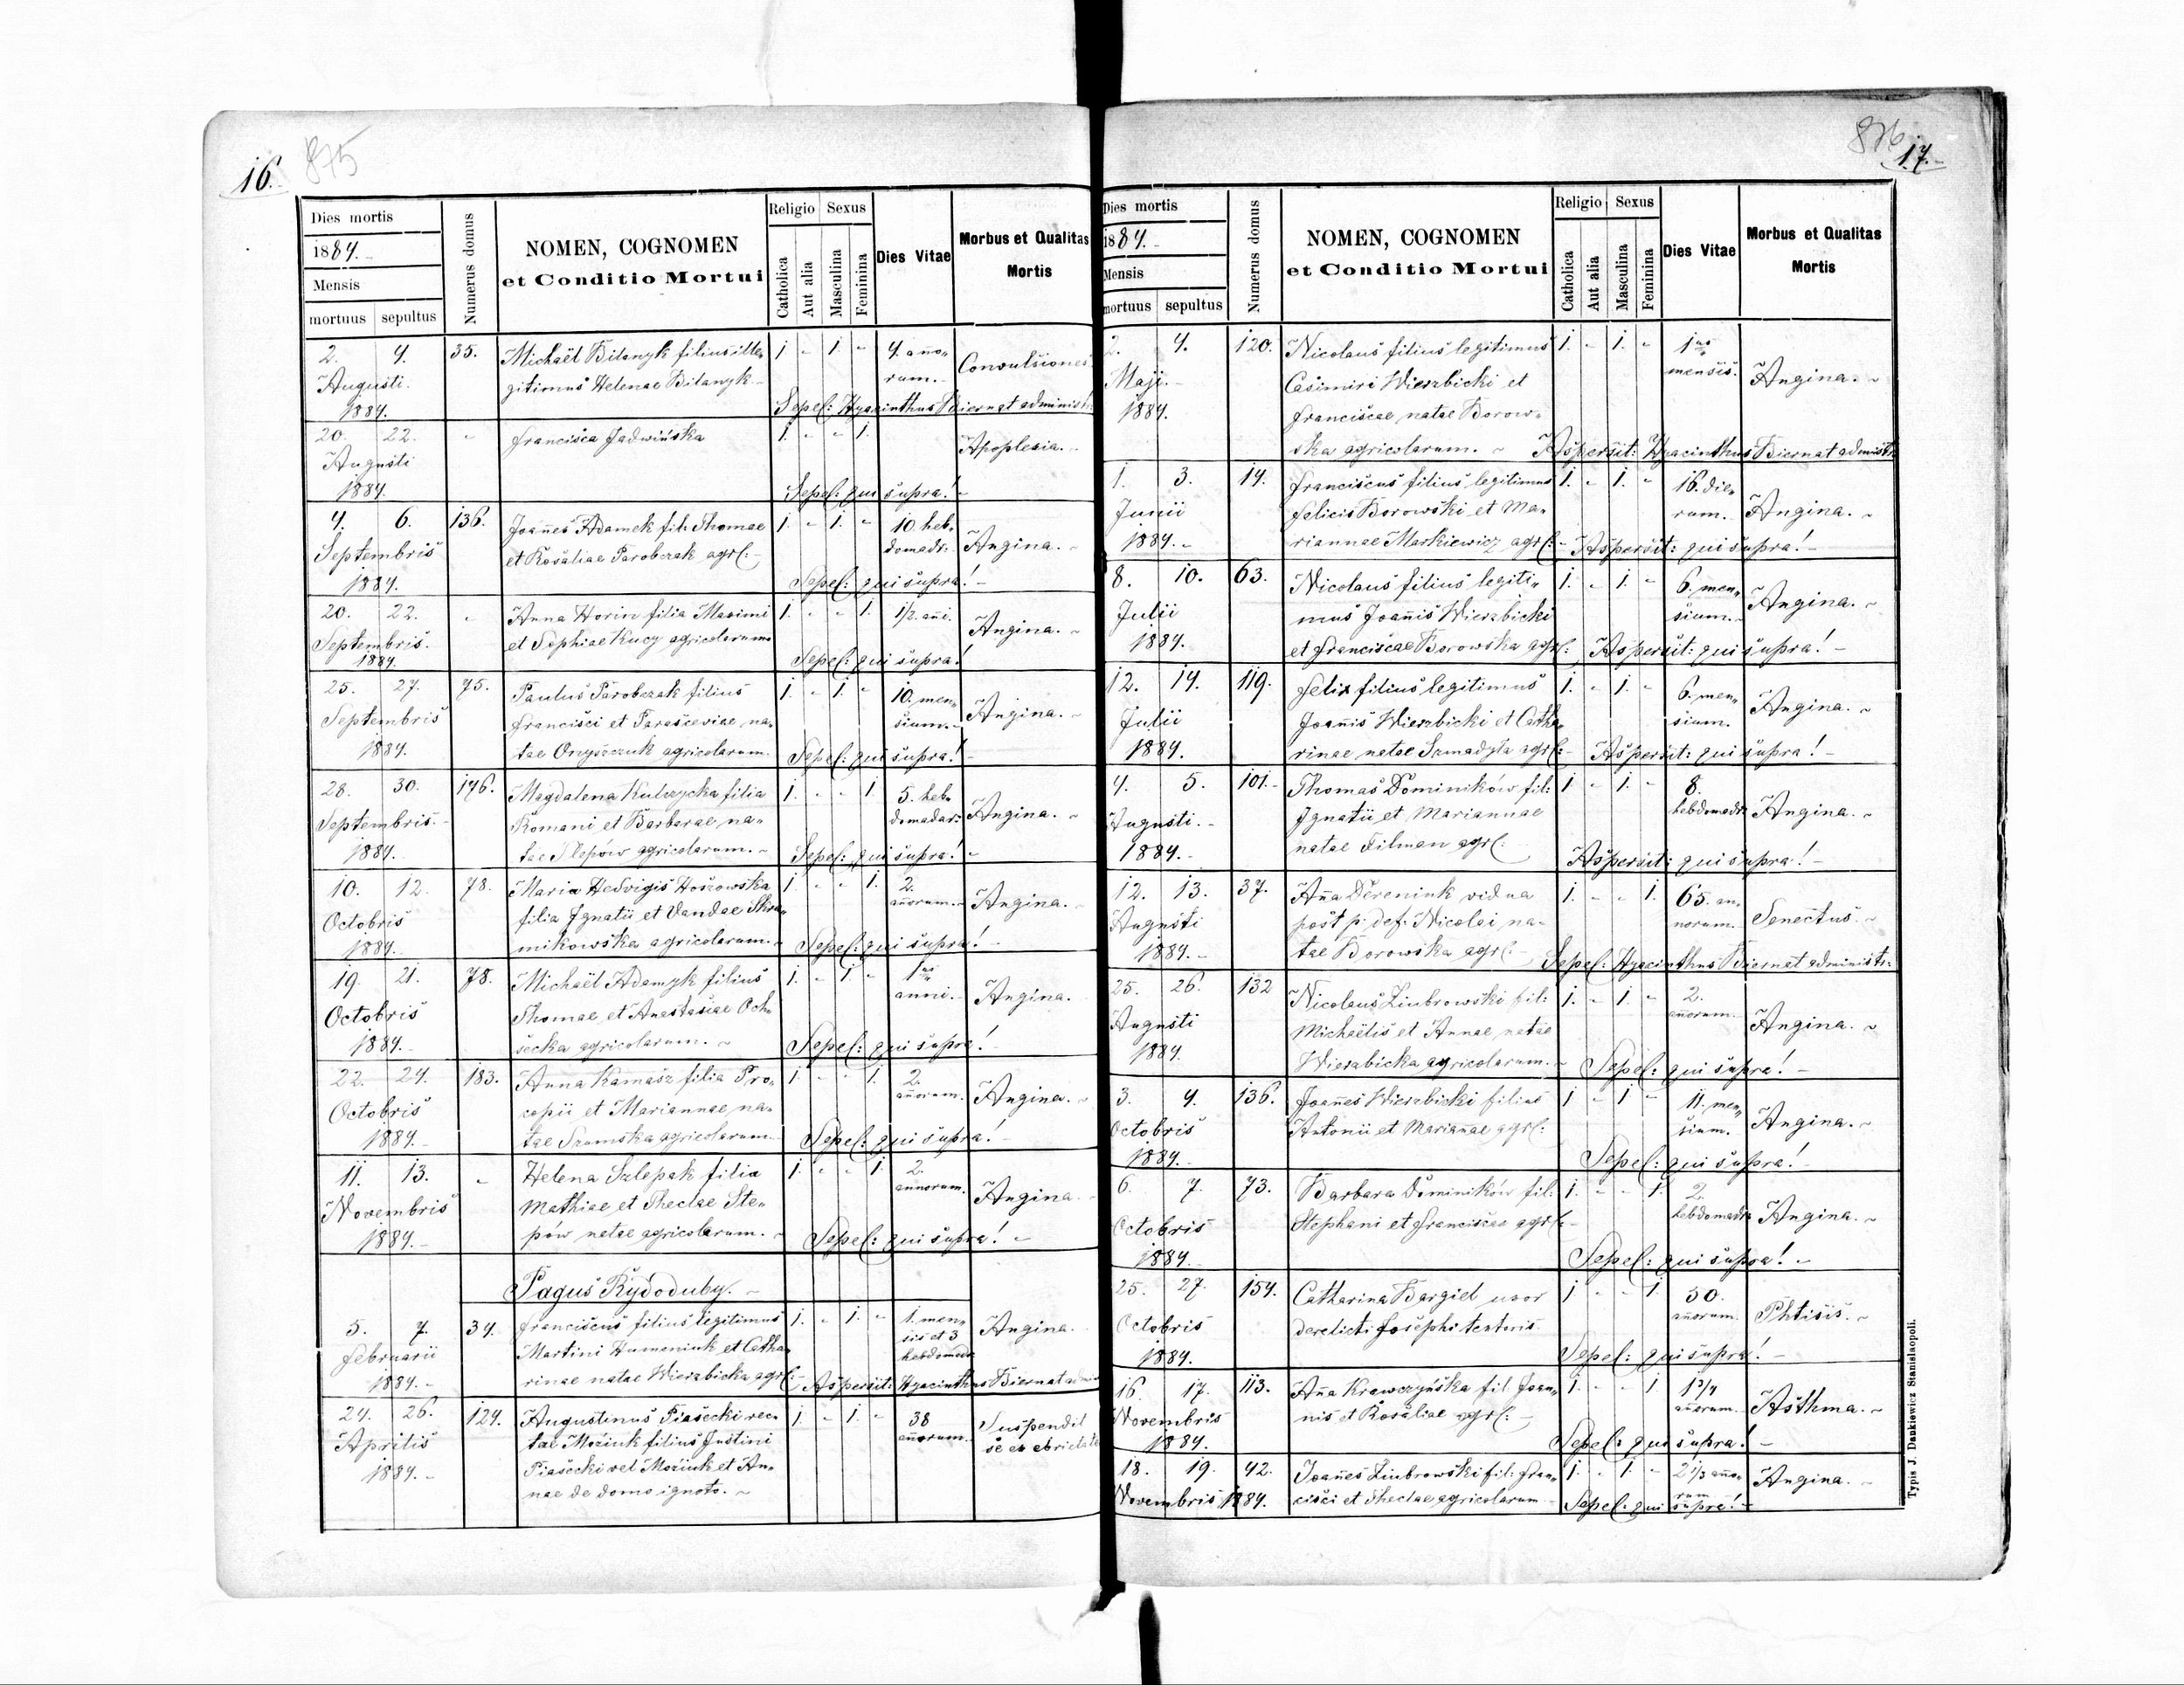 16.
875
Dies mortis
1884.
Mensis
mortuus sepultus
Numerus domus
NOMEN, COGNOMEN
et Conditio Mortui
Religio Sexus
Catholica
Aut alia
Masculina
Feminina
Dies Vitae
Morbus et Qualitas
Mortis
2. 4. 35. Michaël Bilanyk filius ille„ 1 - 1. - 4. año„ Convulsiones
Augusti. gitimus Helenae Bilanyk rum.
1884. Sepel: Hyacinthus Biernat administ:
20. 22. - Francisca Jadwińska 1. - - 1. Apoplexia.
Augusti
1884. Sepel: qui supra!
4. 6. 136. Joañes Adamek fil. Thomae 1. - 1. - 10 heb„ Angina.
Septembris et Rosaliae Parobczak agrl: domadr:
1884. Sepel: qui supra!
20. 22. - Anna Horin filia Maximi 1. - - 1. 1/2 añi. Angina.
Septembris. et Sophiae Kucy agricolarum
1884. Sepel: qui supra!
25. 27. 75. Paulus Parobczak filius 1. - 1. - 10. men„ Angina.
Septembris Francisci et Parasceviae na„ sium.
1884. tae Onyszczuk agricolarum. Sepel: qui supra!
28. 30. 196. Magdalena Kulczycka filia 1. - - 1 5. heb„ Angina.
Septembris. Romani et Barbarae na„ domadar:
1884. tae Slepów agricolarum. Sepel: qui supra!
10. 12. 78. Maria Hedvigis Hoszowska 1. - - 1. 2. Angina.
Octobris filia Ignatii et Vandae Skra„ añorum.
1884. mikowska agricolarum. Sepel: qui supra!
19. 21. 78. Michaël Adamyk filius 1. - 1. - 1us Angina.
Octobris Thomae et Anastasiae Och„ anni.
1884. secka agricolarum. Sepel: qui supra!
22. 24. 183. Anna Kamasz filia Pro„ 1. - - 1. 2. Angina.
Octobris copii et Mariannae na„ añorum.
1884. tae Szumska agricolarum. Sepel: qui supra!
11. 13. - Helena Szlepak filia 1. - - 1. 2. Angina.
Novembris Mathiae et Theclae Ste„ annorum.
1884. pów natae agricolarum. Sepel: qui supra!
Pagus Rydoduby.
5. 7. 34. Franciscus filius legitimus 1. - 1. - 1. men„ Angina.
Februarii Martini Humeniuk et Catha„ sis et 3 hebdomadr
1884. rinae natae Wierzbicka agrl: Aspersit: Hyacinthus Biernat admin
24. 26. 124. Augustinus Piasecki rec„ 1. - 1. - 38 Suspendit
Aprilis tae Moziuk filius Justini añorum. se ex ebrietate
1884. Piasecki vel Moziuk et An„
nae de domo ignota.
876
17.
Dies mortis
1884.
Mensis
mortuus sepultus
Numerus domus
NOMEN, COGNOMEN
et Conditio Mortui
Religio Sexus
Catholica
Aut alia
Masculina
Feminina
Dies Vitae
Morbus et Qualitas
Mortis
2. 4. 120. Nicolaus filius legitimus 1. - 1. - 1us Angina.
Maji. Casimiri Wierzbicki et mensis.
1884. Franciscae natae Borow„
ska agricolarum. Aspersit: Hyacinthus Biernat administr:
1. 3. 14. Franciscus filius legitimus 1. - 1. - 16. die„ Angina.
Junii Felicis Borowski et Ma„ rum.
1884. riannae Markiewicz agrl: Aspersit: qui supra!
8. 10. 63. Nicolaus filius legiti„ 1. - 1. - 6. men„ Angina.
Julii mus Joañis Wierzbicki sium.
1884. et Franciscae Borowska agrl: Aspersit: qui supra!
12. 14. 119. Felix filius legitimus 1. - 1. - 6. men„ Angina.
Julii Joañis Wierzbicki et Catha„ sium.
1884. rinae natae Szmadyla agrl: Aspersit: qui supra!
4. 5. 101. Thomas Dominików fil: 1 - 1. - 8. Angina.
Augusti. Ignatii et Mariannae hebdomadr
1884. natae Filman agrl: Aspersit: qui supra!
12. 13. 37. Aña Dereniuk vidua 1. - - 1. 65. an„ Senectus.
Augusti post p: def: Nicolai na„ norum.
1884. tae Borowska agrl: Sepel: Hyacinthus Biernat administr:
25. 26. 132 Nicolaus Ziubrowski fil: 1. - 1. - 2. Angina.
Augusti Michaëlis et Annae natae añorum.
1884. Wierzbicka agricolarum. Sepel: qui supra!
3. 4. 136. Joañes Wierzbicki filius 1 - 1 - 11. men„ Angina.
Octobris Antonii et Mariañae agrl: sium.
1884. Sepel: qui supra!
6. 7. 73. Barbara Dominików fil: 1. - - 1. 2. Angina.
Octobris Stephani et Franciscae agrl: hebdomadr
1884. Sepel: qui supra!
25. 27. 154. Catharina Bargiel uxor 1 - - 1. 50. Phtisis.
Octobris derelicti Josephi textoris añorum.
1884. Sepel: qui supra!
16. 17. 113. Aña Krawczyńska fil Joan„ 1. - - 1 1 3/4 Asthma.
Novembris nis et Rosaliae agrl: añorum.
1884. Sepel: qui supra!
18. 19. 42. Joañes Ziubrowski fil: Fran„ 1. - 1. - 2 1/3 año„ Angina.
Novembris 1884. cisci et Theclae agricolarum rum Sepel: qui supra!
Typis J. Dankiewicz Stanislaopoli.